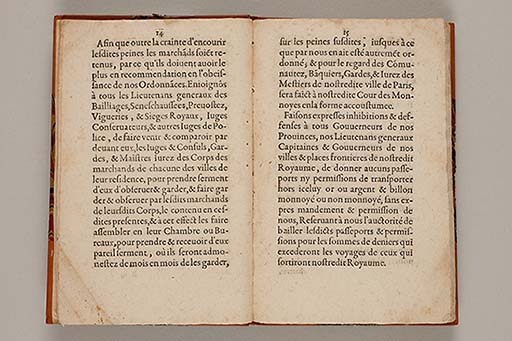 14
Afin que outre la crainte d'encourir
lesdites peines les marchāds soiēt re-
tenus, par ce qu'ils doiuent auoir le
plus en recommendation en l'obeis-
sance de nos Ordonnāces. Enioignōs
à tous les Lieutenans generaux des
Bailliages, Seneschaussées, Preuostez,
Vigueries, & Sieges Royaux, Iuges
Conseruateurs, & autres Iuges de Po-
lice, de faire venir & comparoir par
deuant eux, les Iuges & Consuls, Gar-
des, & Maistres Iurez des Corps des
marchands de chacune des villes de
leur residence, pour prendre serment
d'eux d'obseruer & garder, & faire gar
der & obseruer par lesdits marchands
de leursdits Corps, le contenu en ces
dites presentes, & à cet effect les faire
assembler en leur Chambre ou Bu-
reaux, pour prendre & receuoir d'eux
pareil serment, où ils seront admo-
nestez de mois en mois de les garder,
15
sur les peines susdites, iusques à ce
que par nous en ait esté autremēt or-
donné; & pour le regard des Cōmu-
nautez, Bāquiers, Gardes, & Iurez des
Mestiers de nostredite ville de Paris,
sera faict à nostredite Cour des Mon-
noyes en la forme accoustumee.
Faisons expresses inhibitions & def-
fenses à tous Gouuerneurs de nos
Prouinces, nos Lieutenans generaux
Capitaines & Gouuerneurs de nos
villes & places frontieres de nostredit
Royaume, de donner aucuns passe-
ports ny permissions de transporter
hors iceluy or ou argent & billon
monnoyé ou non monnoyé, sans ex-
pres mandement & permission de
nous, Reseruant à nous l'auctorité de
bailler lesdicts passeports & permis-
sions pour les sommes de deniers qui
excederont les voyages de ceux qui
sortiront nostredit Royaume.